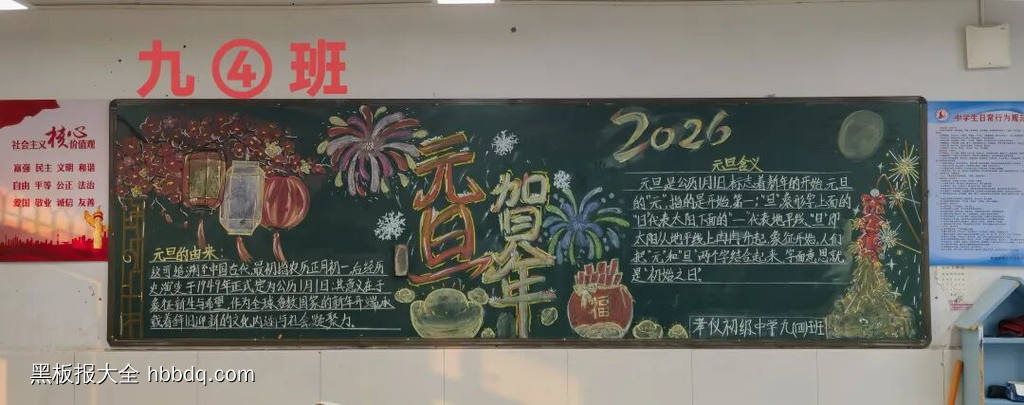 九④班
社会主义核心价值观
富强 民主 文明 和谐
自由 平等 公正 法治
爱国 敬业 诚信 友善
中学生日常行为规
元旦
贺年
2026
元旦含义
元旦是公历1月1日,标志着新年的开始,元旦
的"元",指的是开始,第一,"旦"象形字上面的
"日"代表太阳下面的"一"代表地平线,"旦"即
太阳从地平线上冉冉升起,象征开始,人们
把"元"和"旦"两个字结合起来,字面意思就
是"初始之日"
元旦的由来:
可追溯至中国古代,最初指农历正月初一,后经历
于1949年正式定为公历1月1日,其意义在于
象征新生与希望,作为全球多数国家的新年开端,承
载着辞旧迎新的文化内涵与社会凝聚力.
福
初级中学九(四)班
黑板报大全 hbbdq.com